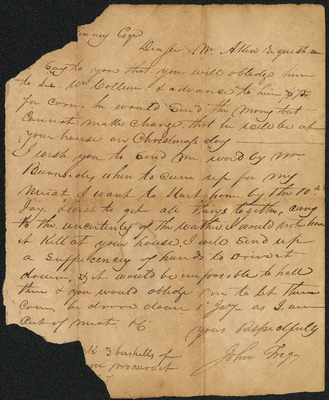 Esqr
Dear Sir Mr. Allen Request me
Say to you that you will obledge him
to See Wm Collum & advance to him
for corn. he would Send the mony but
Cannot make change that he will be at
your house on Christmas day
I wish you to Send me word by Mr.
when to cum up for my
meat I want to Start home by the 10th
Jany I wish to get all things together, owing
to the uncertinty of the wather I would
it Kill at your house. I will Send up
a Suffucincy of hands to drive it
down, as it would be imposible to hall
them & you would obledge me to let them
come, be drove down by as I am
out of meat &c
yours Respectfully
John
3 bushells of